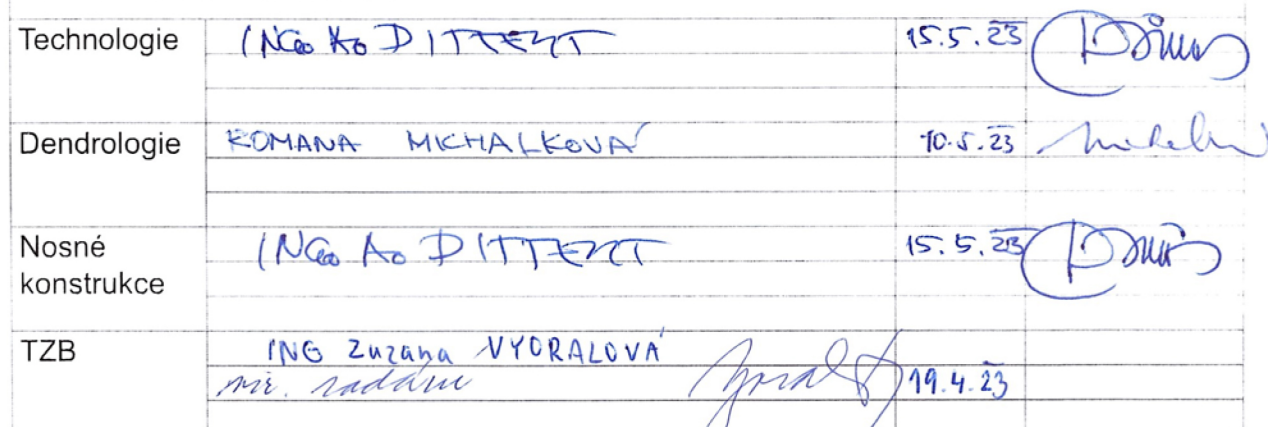 Technologie ING. A. DITTERT 15.5.23
Dendrologie ROMANA MICHALKOVÁ 10.5.23
Nosné konstrukce ING. A. DITTERT 15.5.23
TZB ING Zuzana VYORALOVÁ
19.4.23